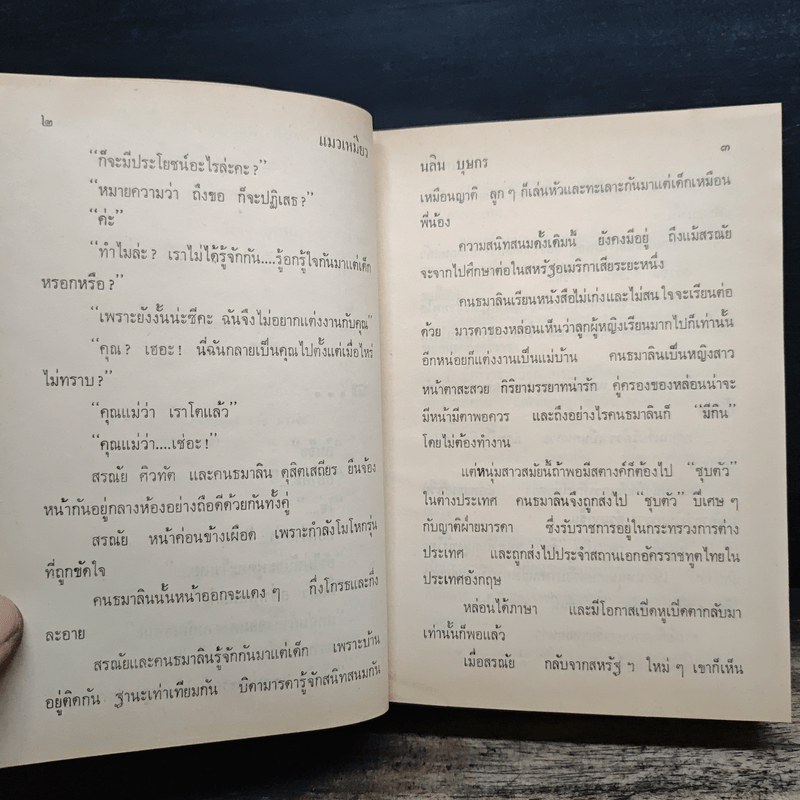 ๒
แมวเหมียว
“ก็จะมีประโยชน์อะไรล่ะคะ ?”
“หมายความว่า ถึงขอ ก็จะปฏิเสธ ?”
“ค่ะ”
“ทำไมล่ะ ? เราไม่ได้รู้จักกัน....รู้อกรู้ใจกันมาแต่เด็ก
หรอกหรือ ?”
“เพราะยังงั้นน่ะซีคะ ฉันจึงไม่อยากแต่งงานกับคุณ”
“คุณ ? เฮอะ ! นี่ฉันกลายเป็นคุณไปตั้งแต่เมื่อไหร่
ไม่ทราบ ?”
“คุณแม่ว่า เราโตแล้ว”
“คุณแม่ว่า....เช่อะ !”
สรณัย ศิวทัต และคนธมาลิน ดุสิตเสถียร ยืนจ้อง
หน้ากันอยู่กลางห้องอย่างถือดีด้วยกันทั้งคู่
สรณัย หน้าค่อนข้างเผือด เพราะกำลังโมโหกรุ่น
ที่ถูกขัดใจ
คนธมาลินนั้นหน้าออกจะแดง ๆ กึ่งโกรธและกึ่ง
ละอาย
สรณัยและคนธมาลินรู้จักกันมาแต่เด็ก เพราะบ้าน
อยู่ติดกัน ฐานะเท่าเทียมกัน บิดามารดารู้จักสนิทสนมกัน
๓
นลิน บุษกร
เหมือนญาติ ลูก ๆ ก็เล่นหัวและทะเลาะกันมาแต่เด็กเหมือน
พี่น้อง
ความสนิทสนมดั้งเดิมนี้ ยังคงมีอยู่ ถึงแม้สรณัย
จะจากไปศึกษาต่อในสหรัฐอเมริกาเสียระยะหนึ่ง
คนธมาลินเรียนหนังสือไม่เก่งและไม่สนใจจะเรียนต่อ
ด้วย มารดาของหล่อนเห็นว่าลูกผู้หญิงเรียนมากไปก็เท่านั้น
อีกหน่อยก็แต่งงานเป็นแม่บ้าน คนธมาลินเป็นหญิงสาว
หน้าตาสะสวย กิริยามรรยาทน่ารัก คู่ครองของหล่อนน่าจะ
มีหน้ามีตาพอควร และถึงอย่างไรคนธมาลินก็ “มีกิน”
โดยไม่ต้องทำงาน
แต่หนุ่มสาวสมัยนี้ถ้าพอมีสตางค์ก็ต้องไป “ชุบตัว”
ในต่างประเทศ คนธมาลินจึงถูกส่งไป “ชุบตัว” ปีเศษ ๆ
กับญาติฝ่ายมารดา ซึ่งรับราชการอยู่ในกระทรวงการต่าง
ประเทศ และถูกส่งไปประจำสถานเอกอัครราชทูตไทยใน
ประเทศอังกฤษ
หล่อนได้ภาษา และมีโอกาสเปิดหูเปิดตากลับมา
เท่านั้นก็พอแล้ว
เมื่อสรณัย กลับจากสหรัฐ ฯ ใหม่ ๆ เขาก็เห็น